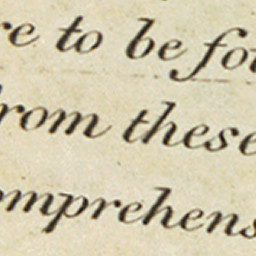 re to be fou
from these
omprehens